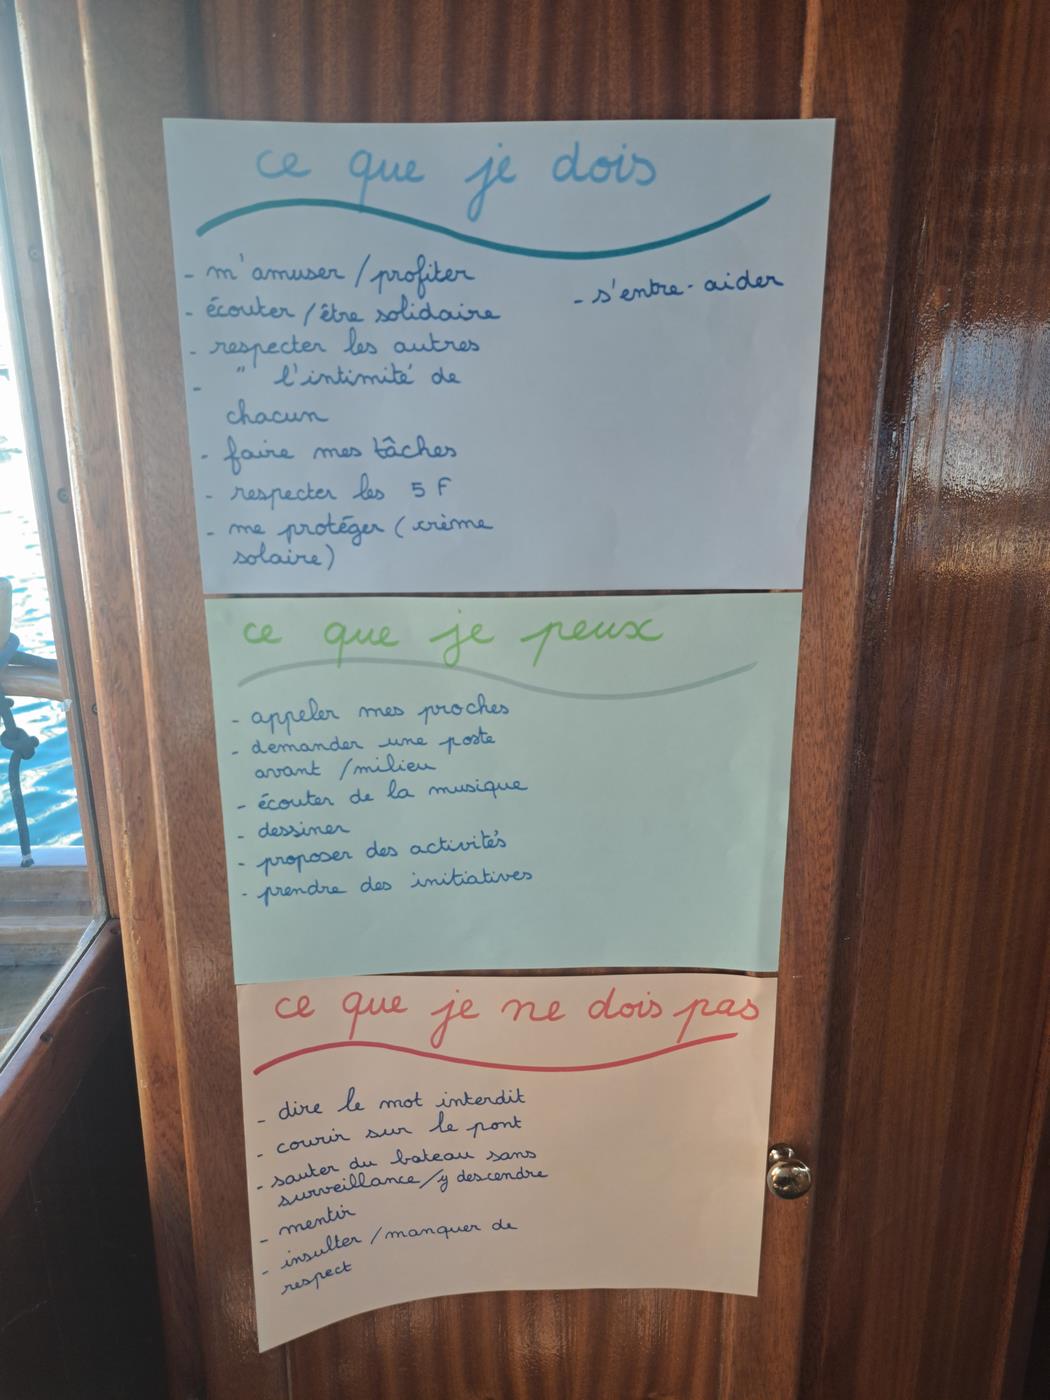 ce que je dois
- m'amuser / profiter
- écouter / être solidaire
- respecter les autres
- " l'intimité de
chacun
- faire mes tâches
- respecter les 5 F
- me protéger (crème
solaire)
- s'entre-aider
ce que je peux
- appeler mes proches
- demander une poste
avant / milieu
- écouter de la musique
- dessiner
- proposer des activités
- prendre des initiatives
ce que je ne dois pas
- dire le mot interdit
- courir sur le pont
- sauter du bateau sans
surveillance / y descendre
- mentir
- insulter / manquer de
respect